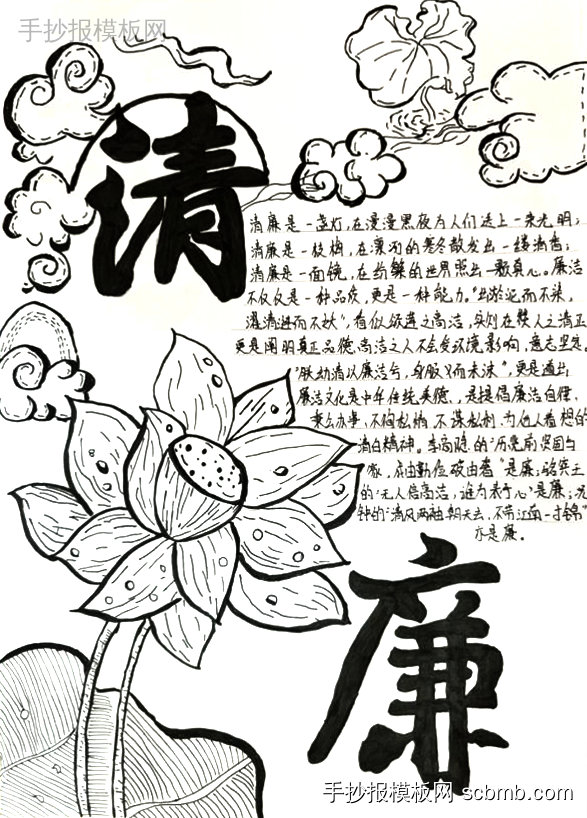 手抄报模板网
清
清廉是一盏灯,在漫漫黑夜为人们送上一束光明;
清廉是一枝梅,在凛冽的寒冬散发出一缕清香;
清廉是一面镜,在纷繁的世界照出一颗真心。廉洁
不仅仅是一种品质,更是一种能力。"出淤泥而不染,
濯清涟而不妖",看似妖莲之高洁,实则在赞人之清正
更是阐明真正品德高尚之人不会受环境影响,意志坚定。
"朕幼清以廉洁兮,身服义而未沫",更是道出
廉洁文化是中华传统美德,是提倡廉洁自律,
秉公办事,不徇私情,不谋私利,为他人着想的
清白精神。李商隐的"历览前贤国与
家,成由勤俭破由奢"是廉;骆宾王
的"无人信高洁,谁为表予心"是廉;
的"清风两袖朝天去,不带江南一寸锦"
亦是廉。
廉
手抄报模板网 scbmb.com